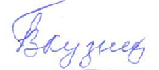 Вкузнец